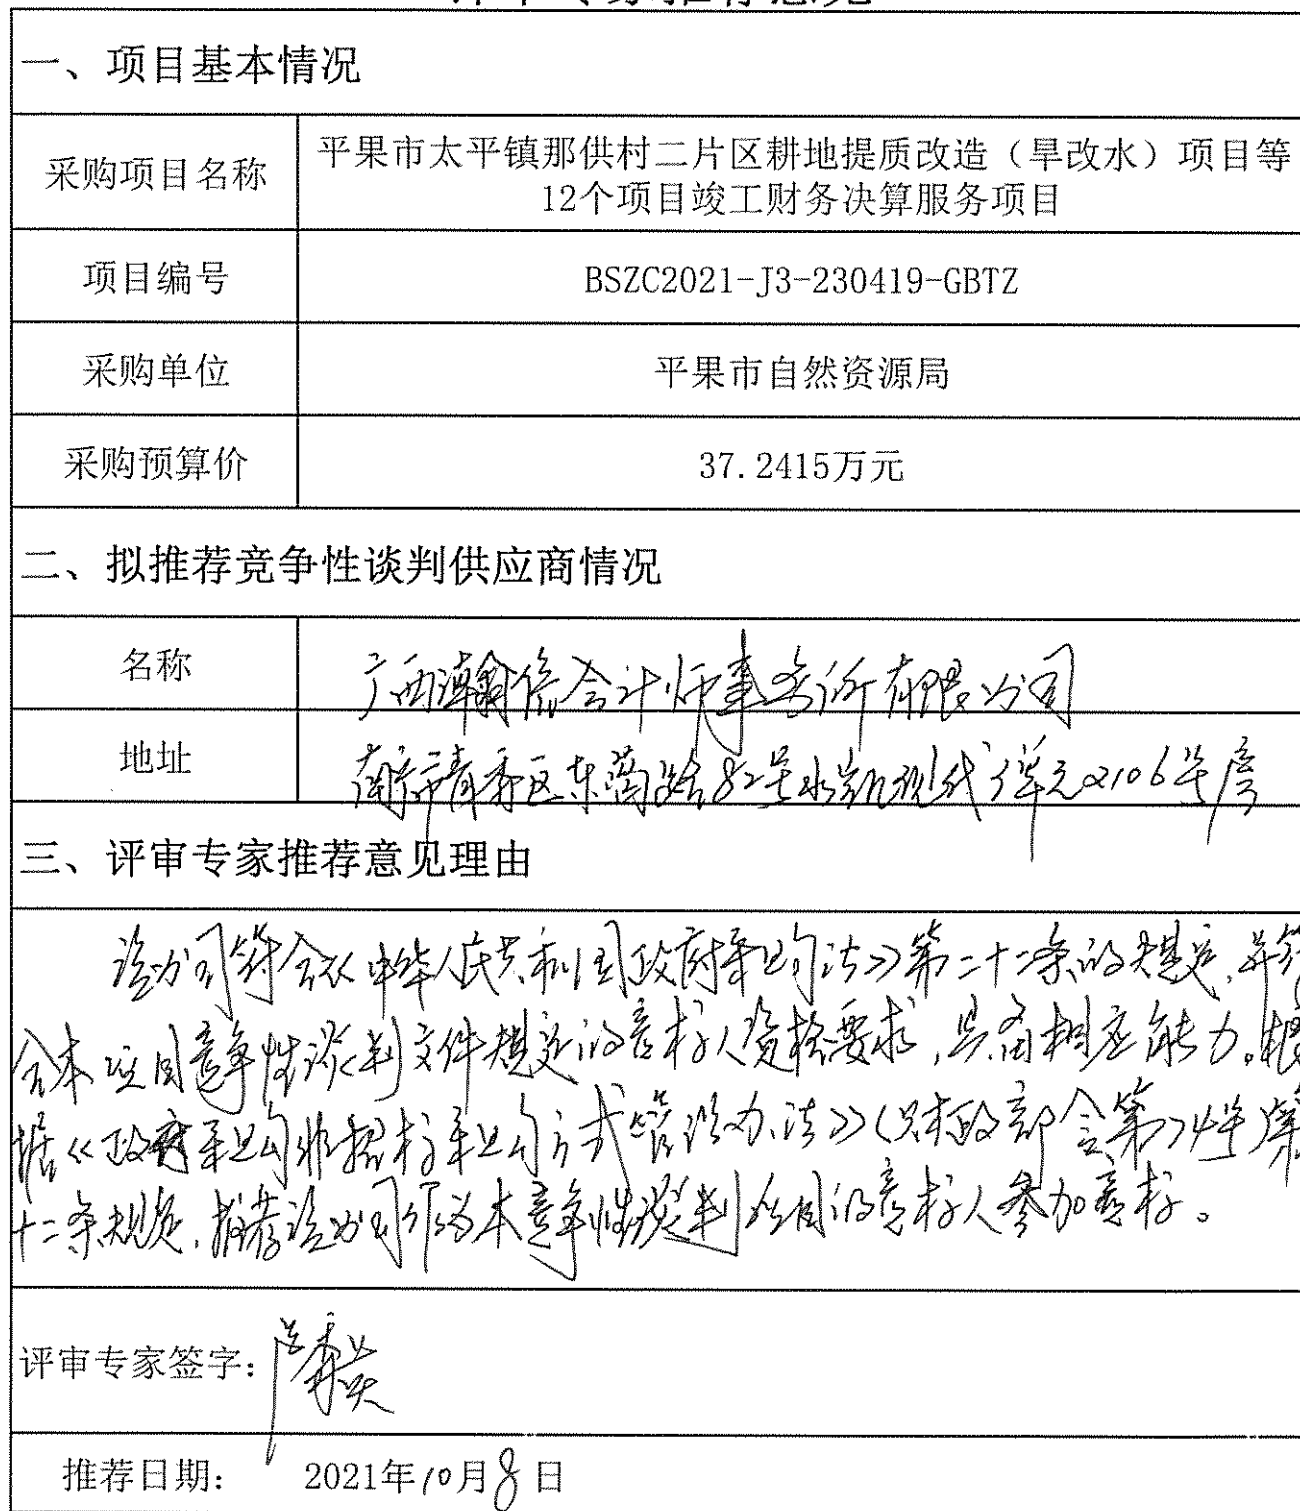 评审专家推荐意见
一、项目基本情况
采购项目名称
平果市太平镇那供村二片区耕地提质改造（旱改水）项目等
12个项目竣工财务决算服务项目
项目编号
BSZC2021-J3-230419-GBTZ
采购单位
平果市自然资源局
采购预算价
37.2415万元
二、拟推荐竞争性谈判供应商情况
名称
广西瀚信会计师事务所有限公司
地址
南宁市青秀区东葛路82号水凯现代1单元2106号房
三、评审专家推荐意见理由
该公司符合《中华人民共和国政府采购法》第二十二条的规定，并符
合本项目竞争性谈判文件规定的竞标人资格要求，具备相应能力。根
据《政府采购非招标采购方式管理办法》（财政部令第74号）第
十二条规定，推荐该公司作为本竞争性谈判项目的竞标人参加竞标。
评审专家签字：
推荐日期： 2021年10月8日